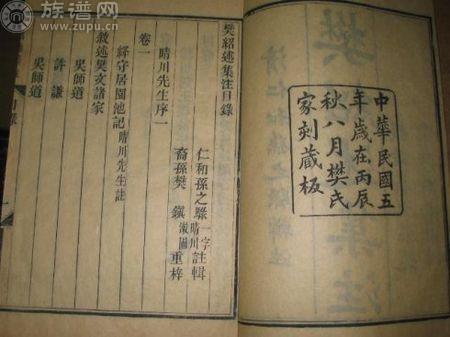 中華民國五
年歲在丙辰
秋八月樊氏
家刻藏板
樊紹述集注目錄
仁和孫之騄一字晴川註輯
裔孫樊鎮漱圃重梓
晴川先生序一
卷一
絳守居園池記晴川先生註
敘述樊文諸家
吳師道
許謙
吳師道
族谱网
www.zupu.cn